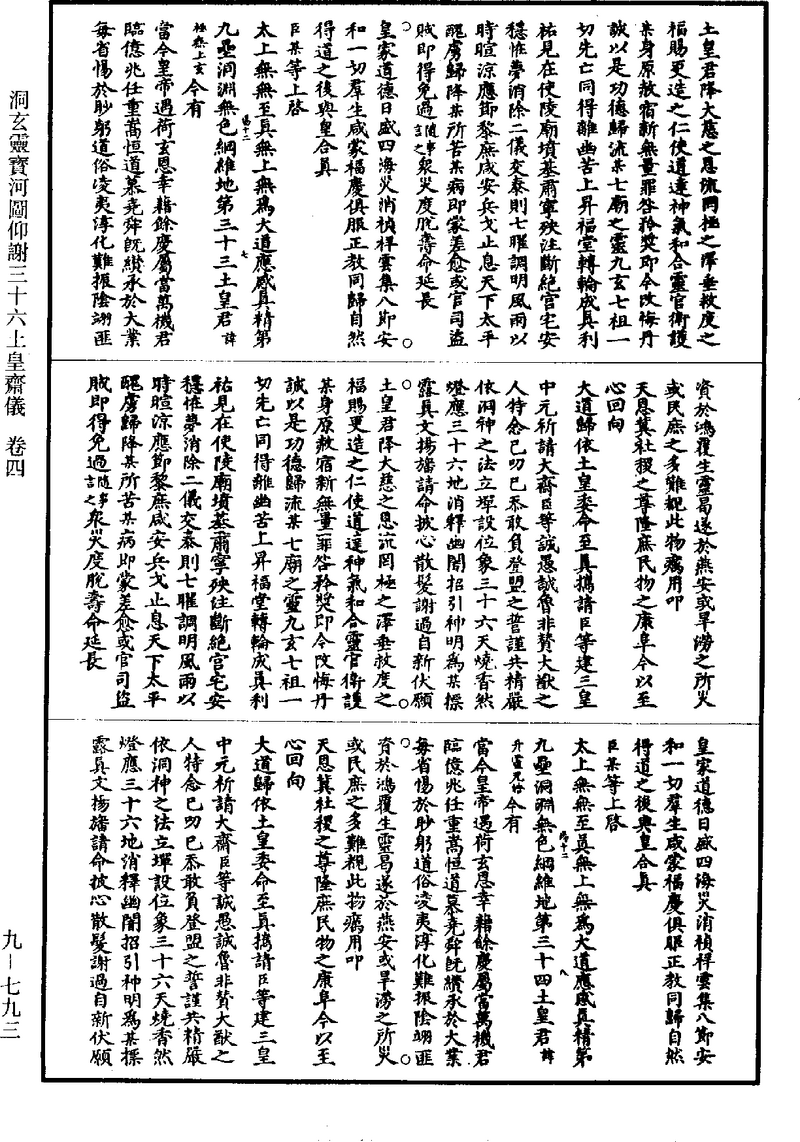 土皇君降大慈之恩流罔極之澤垂救度之
福賜更造之仁使道達神氣和合靈官衛護
某身原赦宿新無量罪咎矜獎即令改悔丹
誠以是功德歸流某七廟之靈九玄七祖一
切先亡同得離幽苦上昇福堂轉輪成真利
祐見在使陵廟墳墓肅寧殃注斷絕官宅安
穩恠夢消除二儀交泰則七曜調明風雨以
時暄涼應節黎庶咸安兵戈止息天下太平
醜虜歸降某所苦某病即蒙差愈或官司盜
賊即得免過隨事言之衆災度脫壽命延長
皇家道德日盛四海災消禎祥雲集八節安
和一切羣生咸蒙福慶俱服正教同歸自然
得道之後與皇合真
臣某等上啓
太上無無至真無上無為大道應感真精第
九壘洞淵無色綱維地第三十三土皇君諱
今有
當今皇帝遇荷玄恩幸藉餘慶屬當萬機君
臨億兆任重嵩恒道慕堯舜旣纘承於大業
每省惕於眇躬道俗凌夷淳化難振陰翊匪
資於鴻覆生靈曷遂於燕安或旱澇之所災
或民庶之多難覩此物癘用叩
天恩冀社稷之尊隆庶民物之康阜今以至
心回向
大道歸依土皇委命至真擕請臣等建三皇
中元祈請大齋臣等誠愚誠魯非贊大猷之
人特念已叨已忝敢負登盟之誓謹共精嚴
依洞神之法立壇設位象三十六天燒香然
燈應三十六地消釋幽闇招引神明為某標
露真文揚旛請命披心散髮謝過自新伏願
土皇君降大慈之恩流罔極之澤垂救度之
福賜更造之仁使道達神氣和合靈官衛護
某身原赦宿新無量罪咎矜獎即令改悔丹
誠以是功德歸流某七廟之靈九玄七祖一
切先亡同得離幽苦上昇福堂轉輪成真利
祐見在使陵廟墳墓肅寧殃注斷絕官宅安
穩恠夢消除二儀交泰則七曜調明風雨以
時暄涼應節黎庶咸安兵戈止息天下太平
醜虜歸降某所苦某病即蒙差愈或官司盜
賊即得免過隨事言之衆災度脫壽命延長
皇家道德日盛四海災消禎祥雲集八節安
和一切羣生咸蒙福慶俱服正教同歸自然
得道之後與皇合真
臣某等上啓
太上無無至真無上無為大道應感真精第
九壘洞淵無色綱維地第三十四土皇君諱
今有
當今皇帝遇荷玄恩幸藉餘慶屬當萬機君
臨億兆任重嵩恒道慕堯舜旣纘承於大業
每省惕於眇躬道俗凌夷淳化難振陰翊匪
資於鴻覆生靈曷遂於燕安或旱澇之所災
或民庶之多難覩此物癘用叩
天恩冀社稷之尊隆庶民物之康阜今以至
心回向
大道歸依土皇委命至真擕請臣等建三皇
中元祈請大齋臣等誠愚誠魯非贊大猷之
人特念已叨已忝敢負登盟之誓謹共精嚴
依洞神之法立壇設位象三十六天燒香然
燈應三十六地消釋幽闇招引神明為某標
露真文揚旛請命披心散髮謝過自新伏願
洞玄靈寶河圖仰謝三十六土皇齋儀 卷四
九－七九三